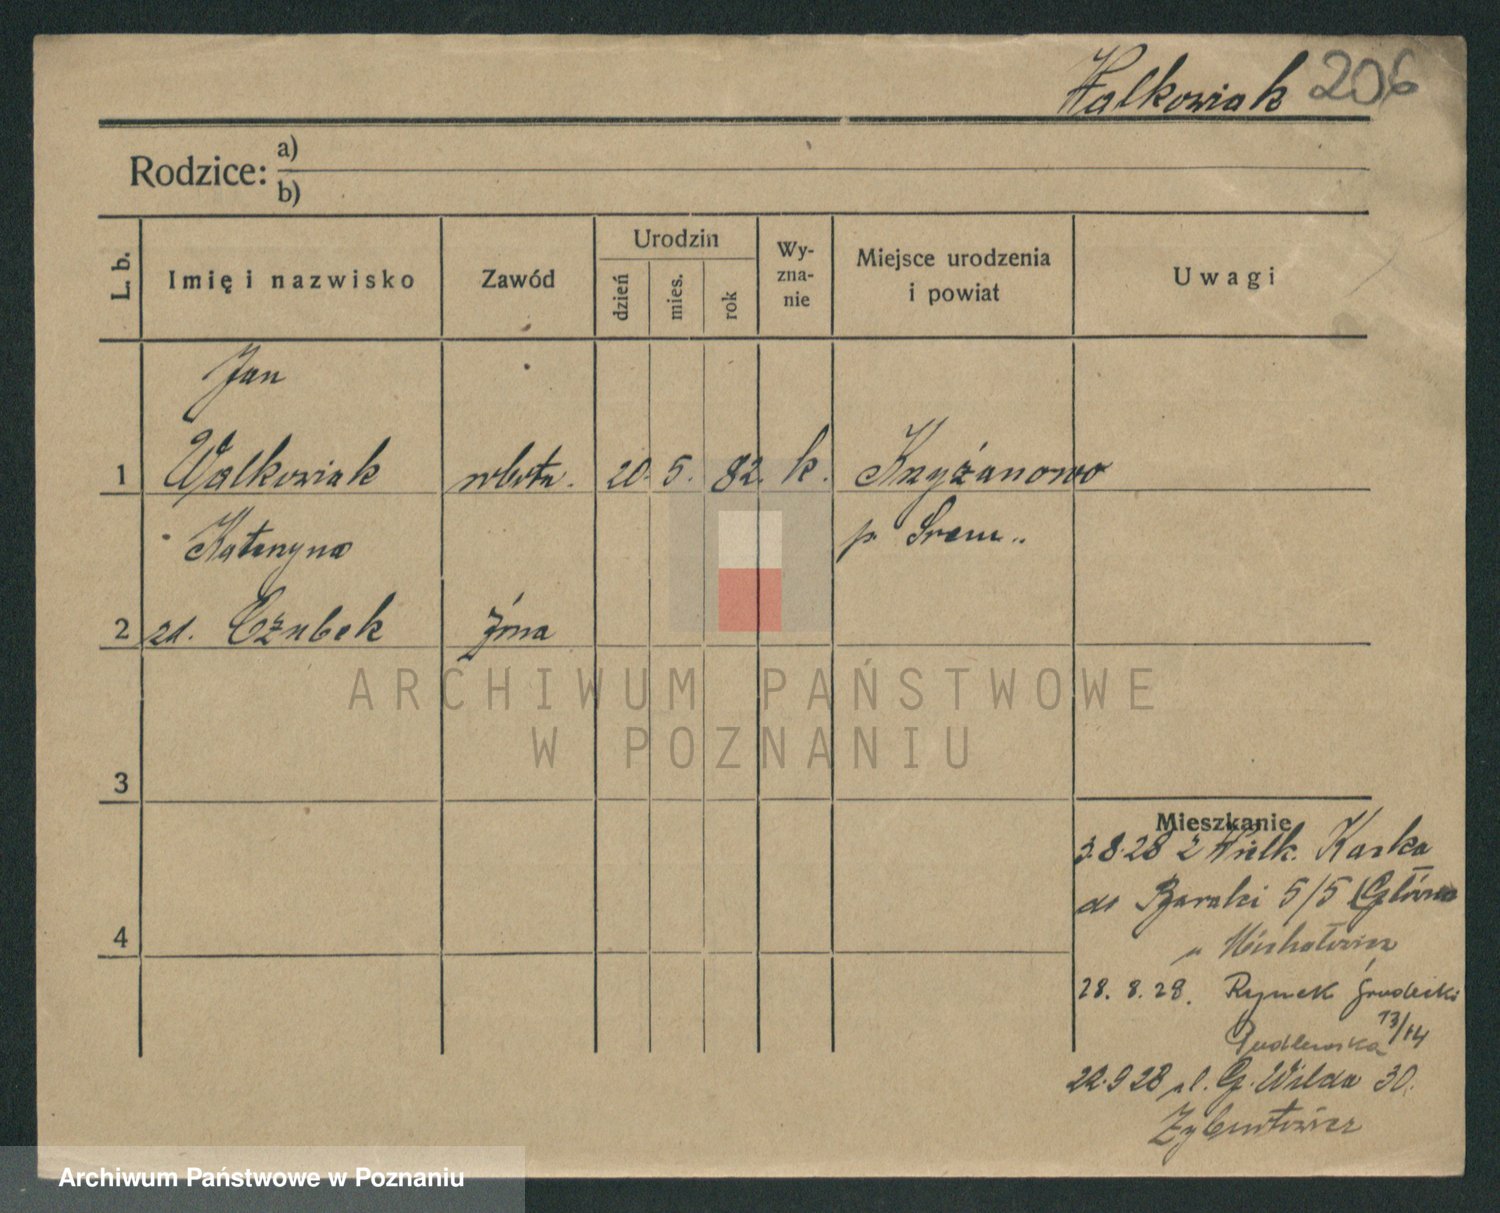 Walkowiak 206
Rodzice: a)
b)
L. b.
Imię i nazwisko
Zawód
Urodzin
dzień
mies.
rok
Wy-
zna-
nie
Miejsce urodzenia
i powiat
Uwagi
Jan
1 Walkowiak robotn. 20. 5. 82. k. Krzyżanowo
p. Srem
Katarzyna
2 zd. Czubek żona
3
4
Mieszkanie
3.8.28 z Wielk.
do Baraki 5/5 Główna
28. 8. 28. Rynek Śródecki
13/14
22.9 28 ul. G. Wilda 30.
ARCHIWUM PAŃSTWOWE
W POZNANIU
Archiwum Państwowe w Poznaniu